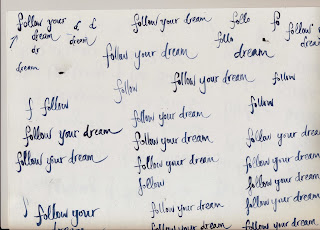 follow your
dream
or
dream
d d
dream
follow your dream
follo
follo
dream
fo
follow y
drea
follow your dream
follow
follow your dream
follow
f follow
follow
follow your dream
follow your dream
follow your dream
follow your dream
follow your dream
follow your dream
follow your dream
follow your dream
follow
follow your dream
follow your
follow your dream
follow your dream
dream
follow your dream
follow your dream